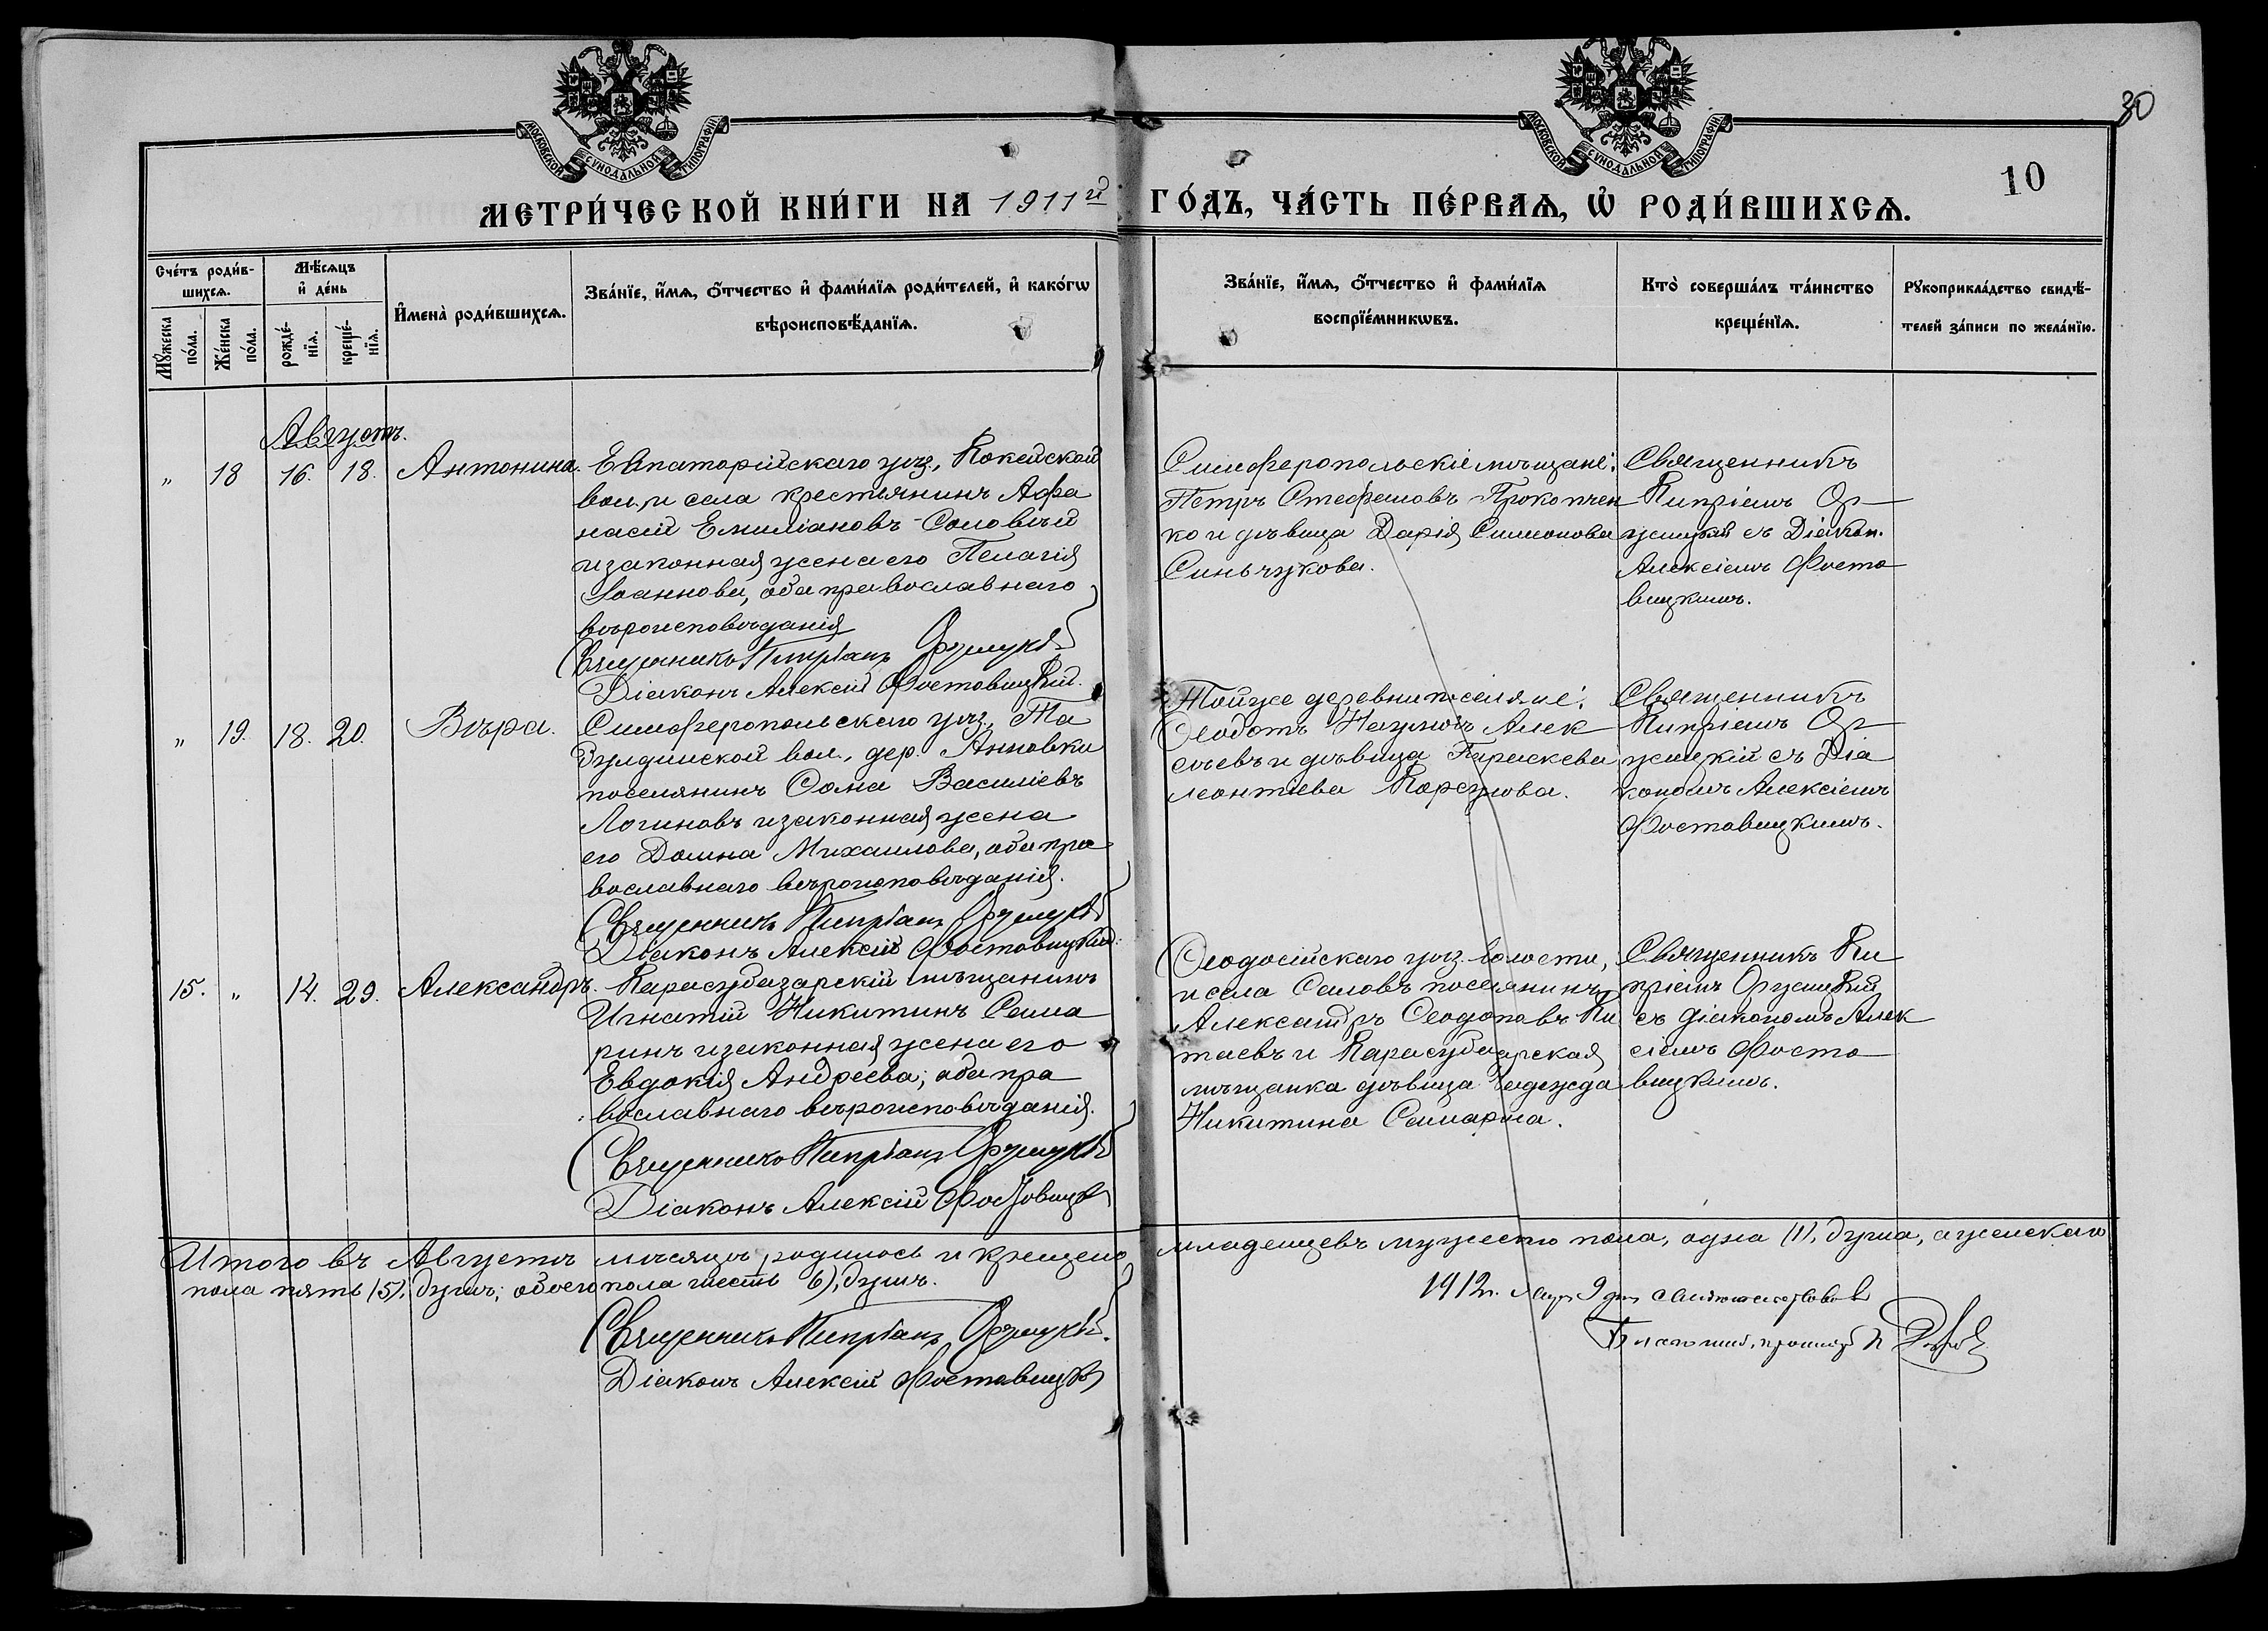 30
10
МОСКОВСКОЙ СѴНОДАЛЬНОЙ ТИПОГРАФІИ
МОСКОВСКОЙ СѴНОДАЛЬНОЙ ТИПОГРАФІИ
МЕТРИ́ЧЕСКОЙ КНИ́ГИ НА 1911й ГО́ДЪ, ЧА́СТЬ ПЕ́РВАѦ, Ѡ҆ РОДИ́ВШИХСѦ.
Сче́тъ роди́в-
шихсѧ.
Мѣ́сѧцъ
и҆ де́нь
И҆мена̀ роди́вшихсѧ.
Зва́нїе, и҆́мѧ, ѻ҆́тчество и҆ фами́лїѧ роди́телей, и҆ како́гѡ
вѣроисповѣ́данїѧ.
Зва́нїе, и҆́мѧ, ѻ҆́тчество и҆ фами́лїѧ
воспрїе́мникѡвъ.
Кто̀ соверша́лъ та́инство
креще́нїѧ.
Рꙋкоприкла́дство свидѣ́-
телей за́писи по жела́нїю.
Мꙋ́жеска
по́ла.
Же́нска
по́ла.
рожде́-
нїѧ.
креще́-
нїѧ.
Августъ.
" 18 16. 18. Антонина.
Евпаторійскаго уѣз., Кокейской
вол., и села крестьянинъ Афа
насій Емиліановъ Соловьій
и законная жена его Пелагія
Іоаннова, оба православнаго
вѣроисповѣданія
Священникъ Кипріанъ Оружицкій
Діаконъ Алексій Фостовицкій.
Симферопольскіе мѣщане:
Петръ Стефановъ Прокопчен
ко и дѣвица Дарія Симеонова
Синьчукова.
Священникъ
Кипріанъ Ор
ужицкій съ Діакон.
Алексіемъ Фосто
вицкимъ.
" 19. 18. 20. Вѣра.
Симферопольскаго уѣз., Та
булдинской вол., дер. Анновки
поселянинъ Ѳома Василіевъ
Логиновъ и законная жена
его Домна Михаилова, оба пра
вославнаго вѣроисповѣданія.
Священникъ Кипріанъ Оружицкій
Діаконъ Алексій Фостовицкій.
Той же деревни поселяне:
Ѳеодотъ Наумовъ Алек
сѣевъ и дѣвица Параскева
Леонтіева Карсунова.
Священникъ
Кипріанъ Ор
ужицкій съ Діа
кономъ Алексіемъ
Фостовицкимъ.
15. " 14. 29. Александръ.
Карасубазарскій мѣщанинъ
Игнатій Никитинъ Сама
ринъ и законная жена его
Евдокія Андреева; оба пра
вославнаго вѣроисповѣданія.
Священникъ Кипріанъ Оружицкій
Діаконъ Алексій Фостовицкій
Ѳеодосійскаго уѣз. волости,
и села Саловъ поселянинъ
Александръ Ѳеодотовъ Ки
таевъ и Карасубазарская
мѣщанка дѣвица Надежда
Никитина Самарина.
Священникъ Ки
пріанъ Оружицкій
съ діакономъ Алек
сіемъ Фосто
вицкимъ.
Итого въ Августѣ мѣсяцѣ, родилось и крещено младенцевъ мужеско пола, одна (1), душа, а женскаго
пола пять (5), душъ; обоего пола шесть 6), душъ.
Священникъ Кипріанъ Оружицкій.
Діаконъ Алексій Фостовицкій
1912г.
9 дня